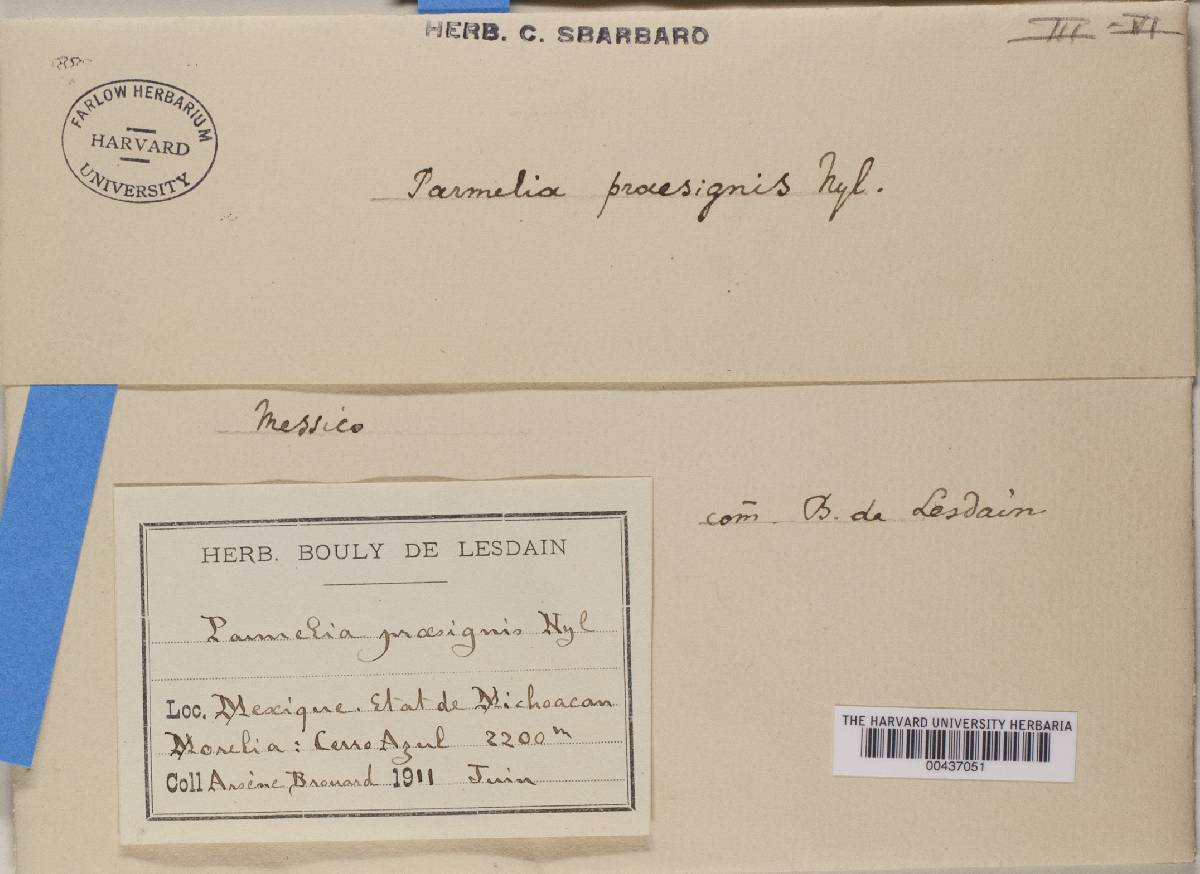 HERB. C. SBARBARO
III - VI
FARLOW HERBARIUM
HARVARD
UNIVERSITY
Parmelia praesignis Nyl.
Messico
com̄. B. de Lesdain
HERB. BOULY DE LESDAIN
Parmelia præsignis Nyl
Loc. Mexique. Etat de Michoacan
Morelia: Cerro Azul 2200m
Coll Arsène Brouard 1911 Juin
THE HARVARD UNIVERSITY HERBARIA
00437051